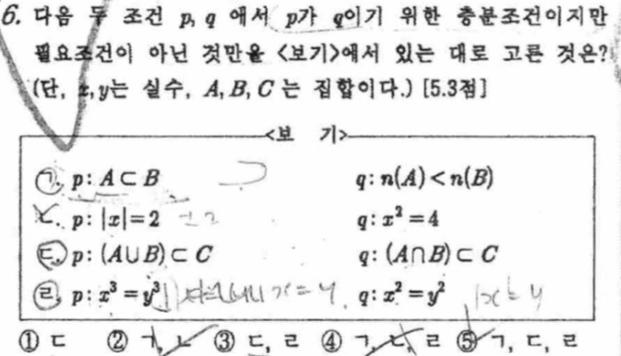 6. 다음 두 조건 p, q 에서 p가 q이기 위한 충분조건이지만
필요조건이 아닌 것만을 <보기>에서 있는 대로 고른 것은?
(단, x, y는 실수, A, B, C 는 집합이다.) [5.3점]
<보 기>
ㄱ. p: A⊂B q: n(A)<n(B)
ㄴ. p: |x|=2 ±2 q: x²=4
ㄷ. p: (A∪B)⊂C q: (A∩B)⊂C
ㄹ. p: x³=y³ x=y q: x²=y²
① ㄷ ② ㄱ, ㄴ ③ ㄷ, ㄹ ④ ㄱ, ㄷ, ㄹ ⑤ ㄱ, ㄷ, ㄹ